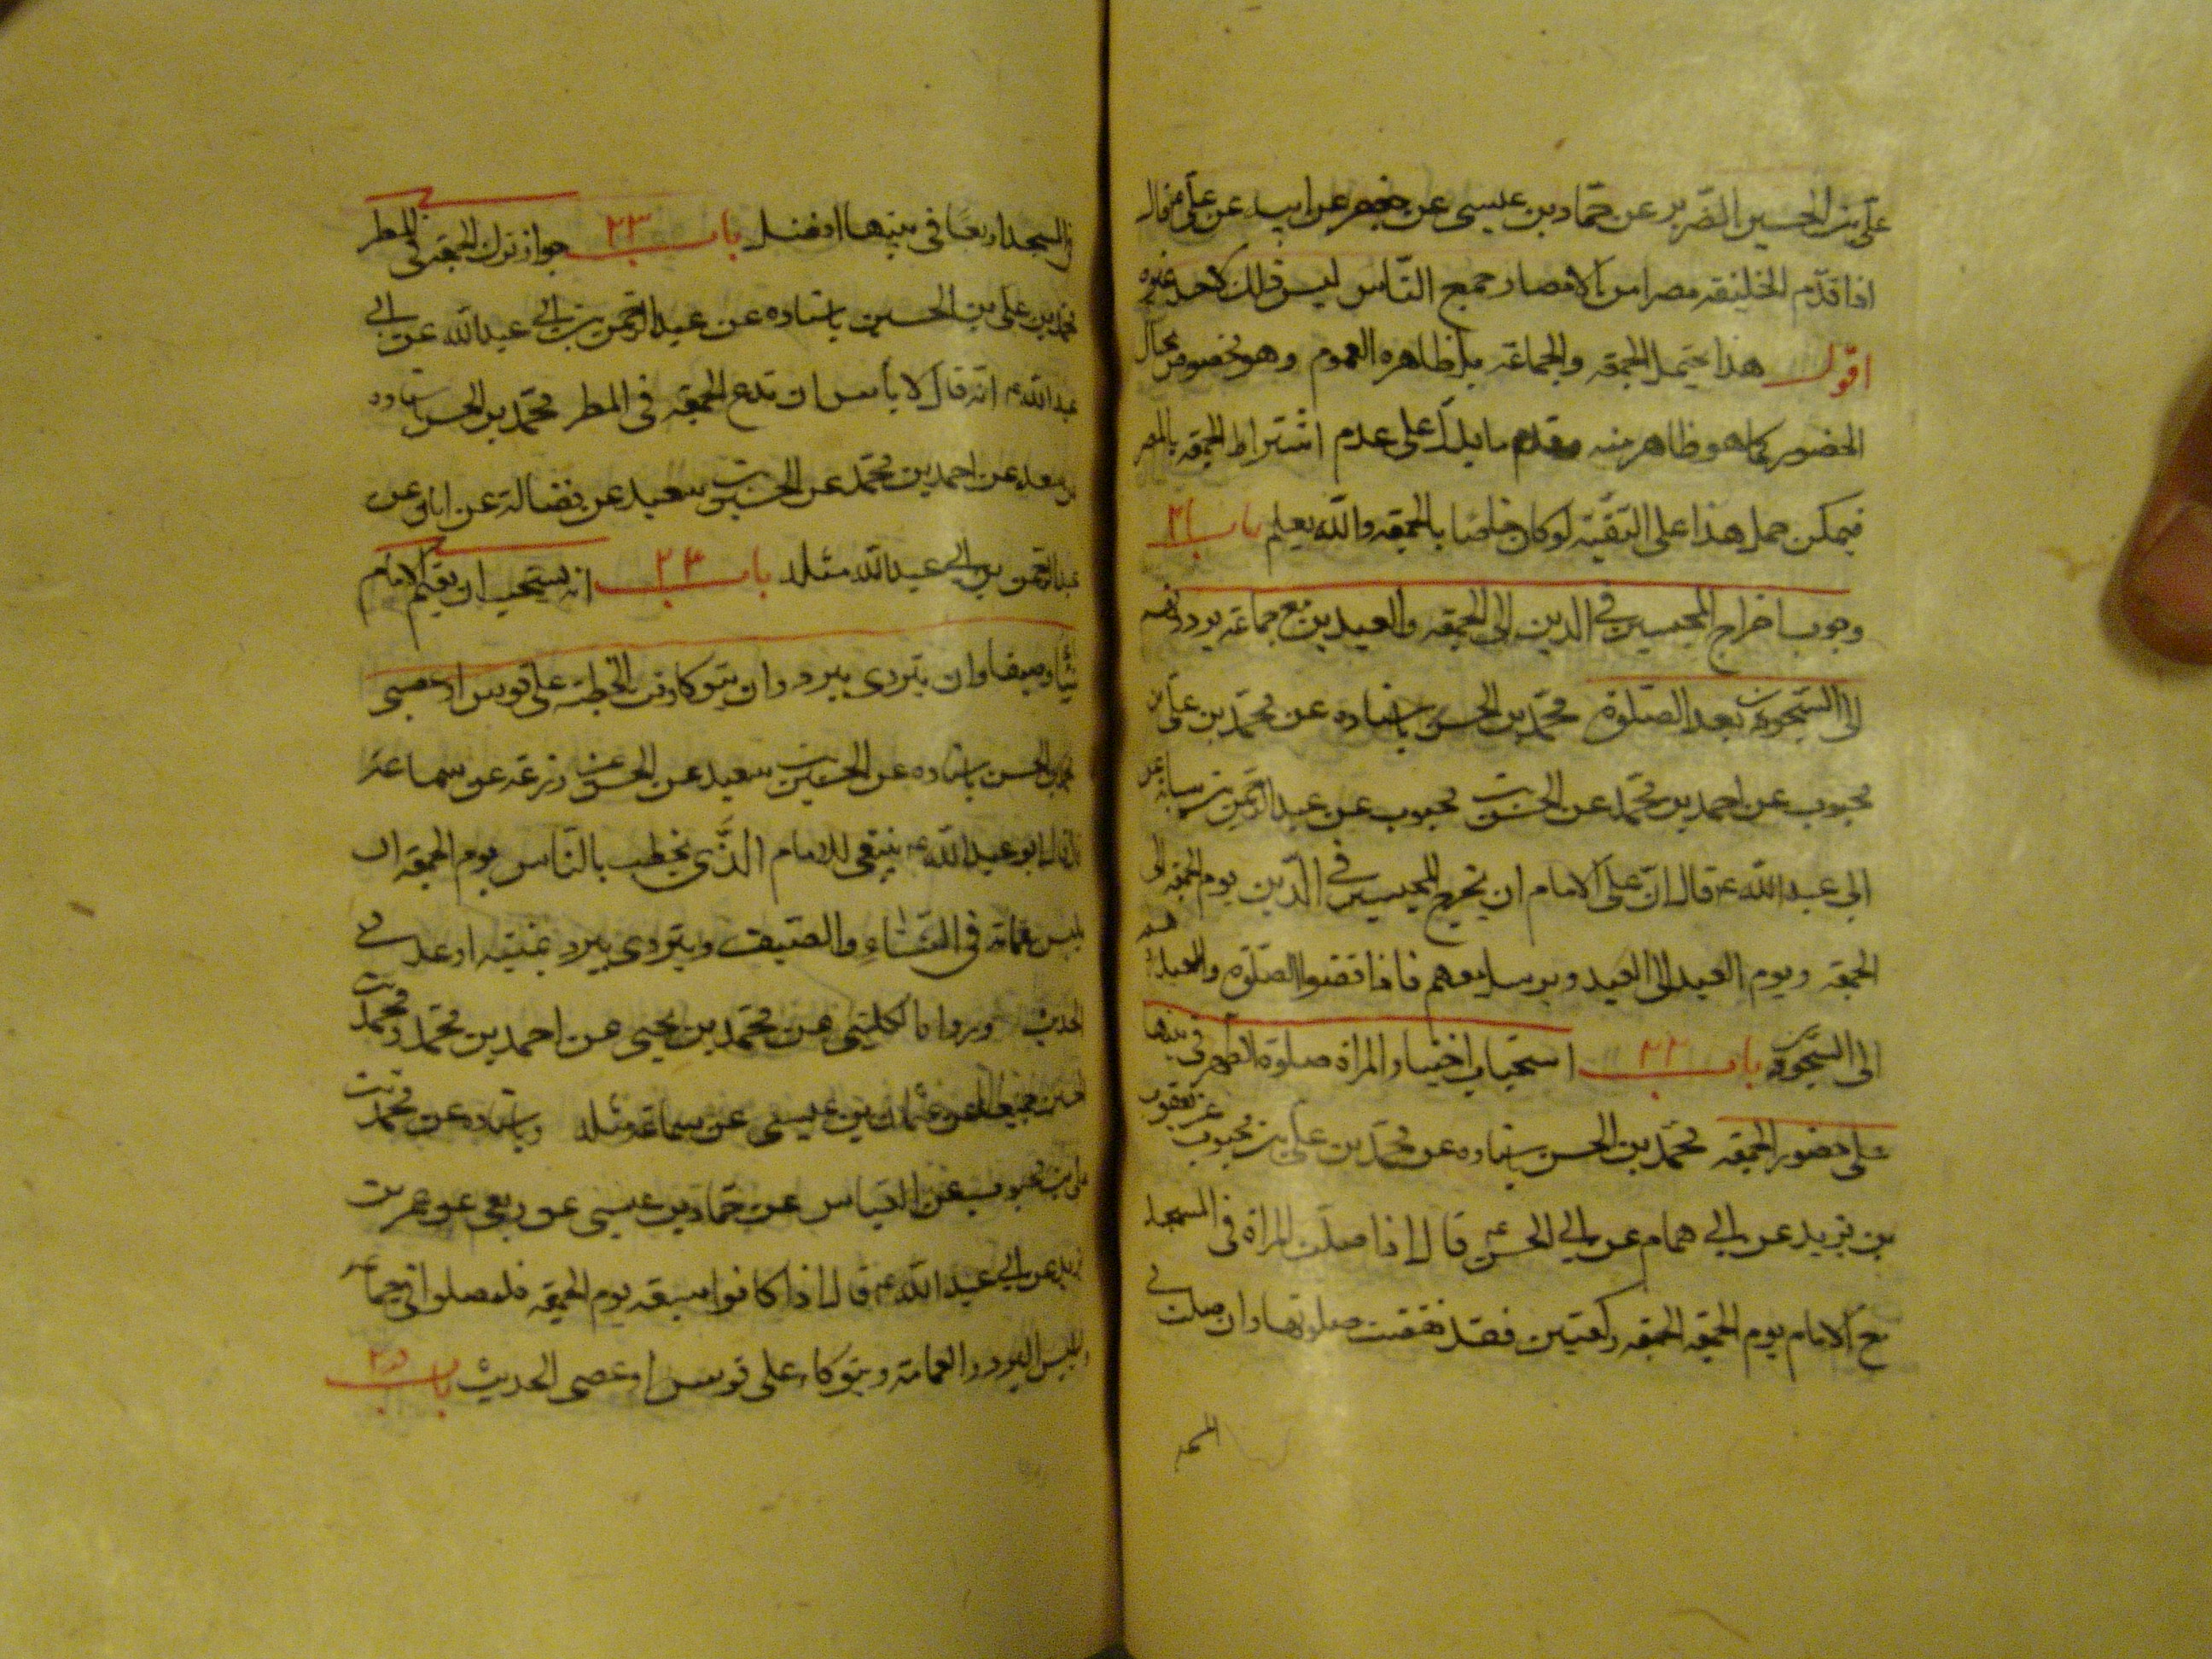 علي بن الحسين الضرير عن حماد بن عيسى عن جعفر عن ابيه عن علي ع قال
اذا قدم الخليفه مصرا من الامصار جمع الناس ليس ذلك لاحد غيره
اقول هذا يحتمل الجمعه والجماعه بل ظاهره العموم وهو مخصوص بحال
الحضور كما هو ظاهر منه وتقدم ما يدل على عدم اشتراط الجمعه بالمصر
فيمكن حمل هذا على التقيه لو كان خاصا بالجمعه والله يعلم باب ٢١
وجوب اخراج المحبسين في الدين الى الجمعه والعيدين مع جماعه يردونهم
الى السجون بعد الصلوة محمد بن الحسن باسناده عن محمد بن علي بن
محبوب عن احمد بن محمد عن الحسن بن محبوب عن عبد الرحمن بن سيابه عن
ابي عبد الله ع قال ان على الامام ان يخرج المحبسين في الدين يوم الجمعه الى
الجمعه ويوم العيد الى العيد ويرسل معهم فاذا قضوا الصلوة والعيد ردهم
الى السجون باب ٢٢ استحباب اختيار المراة صلوة الظهر في بيتها
على حضور الجمعه محمد بن الحسن باسناده عن محمد بن علي بن محبوب عن يعقوب
بن يزيد عن ابي همام عن ابي الحسن ع قال اذا صلت المراة في المسجد
مع الامام يوم الجمعه الجمعه ركعتين فقد نقصت صلوتها وان صلت في
المسجد اربعا في بيتها افضل باب ٢٣ جواز ترك الجمعه في المطر
محمد بن علي بن الحسين باسناده عن عبد الرحمن بن ابي عبد الله عن ابي
عبد الله ع انه قال لا بأس ان تدع الجمعه في المطر محمد بن الحسن باسناده
عن سعد عن احمد بن محمد عن الحسين بن سعيد عن فضالة عن ابان عن
عبد الرحمن بن ابي عبد الله مثله باب ٢٤ انه يستحب ان يعتم الامام
شتاء وصيفا وان يتردى ببرد وان يتوكا وقت الخطبة على قوس او عصى
محمد بن الحسن باسناده عن الحسين بن سعيد عن الحسن عن زرعة عن سماعة
قال قال ابو عبد الله ع ينبغي للامام الذي يخطب بالناس يوم الجمعه ان
يلبس عمامة في الشتاء والصيف ويتردى ببرد يمنيه او عدني
الحديث ورواه الكليني عن محمد بن يحيى عن احمد بن محمد ومحمد بن
الحسين جميعا عن عثمان بن عيسى عن سماعة مثله وباسناده عن محمد بن
علي بن محبوب عن العباس عن حماد بن عيسى عن ربعي عن عمر بن
يزيد عن ابي عبد الله ع قال اذا كانوا سبعه يوم الجمعه فليصلوا في جماعه
وليلبس البرد والعمامة ويتوكاء على قوس او عصى الحديث باب ٢٥